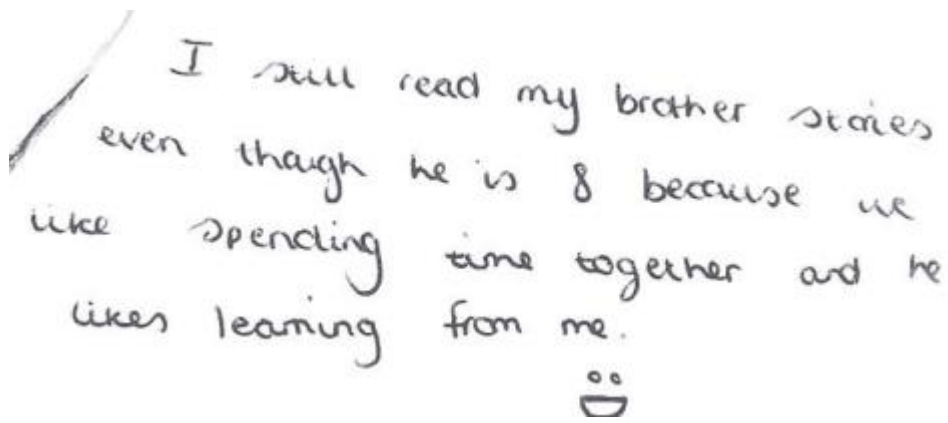 I still read my brother stories
even though he is 8 because we
like spending time together and he
likes learning from me.